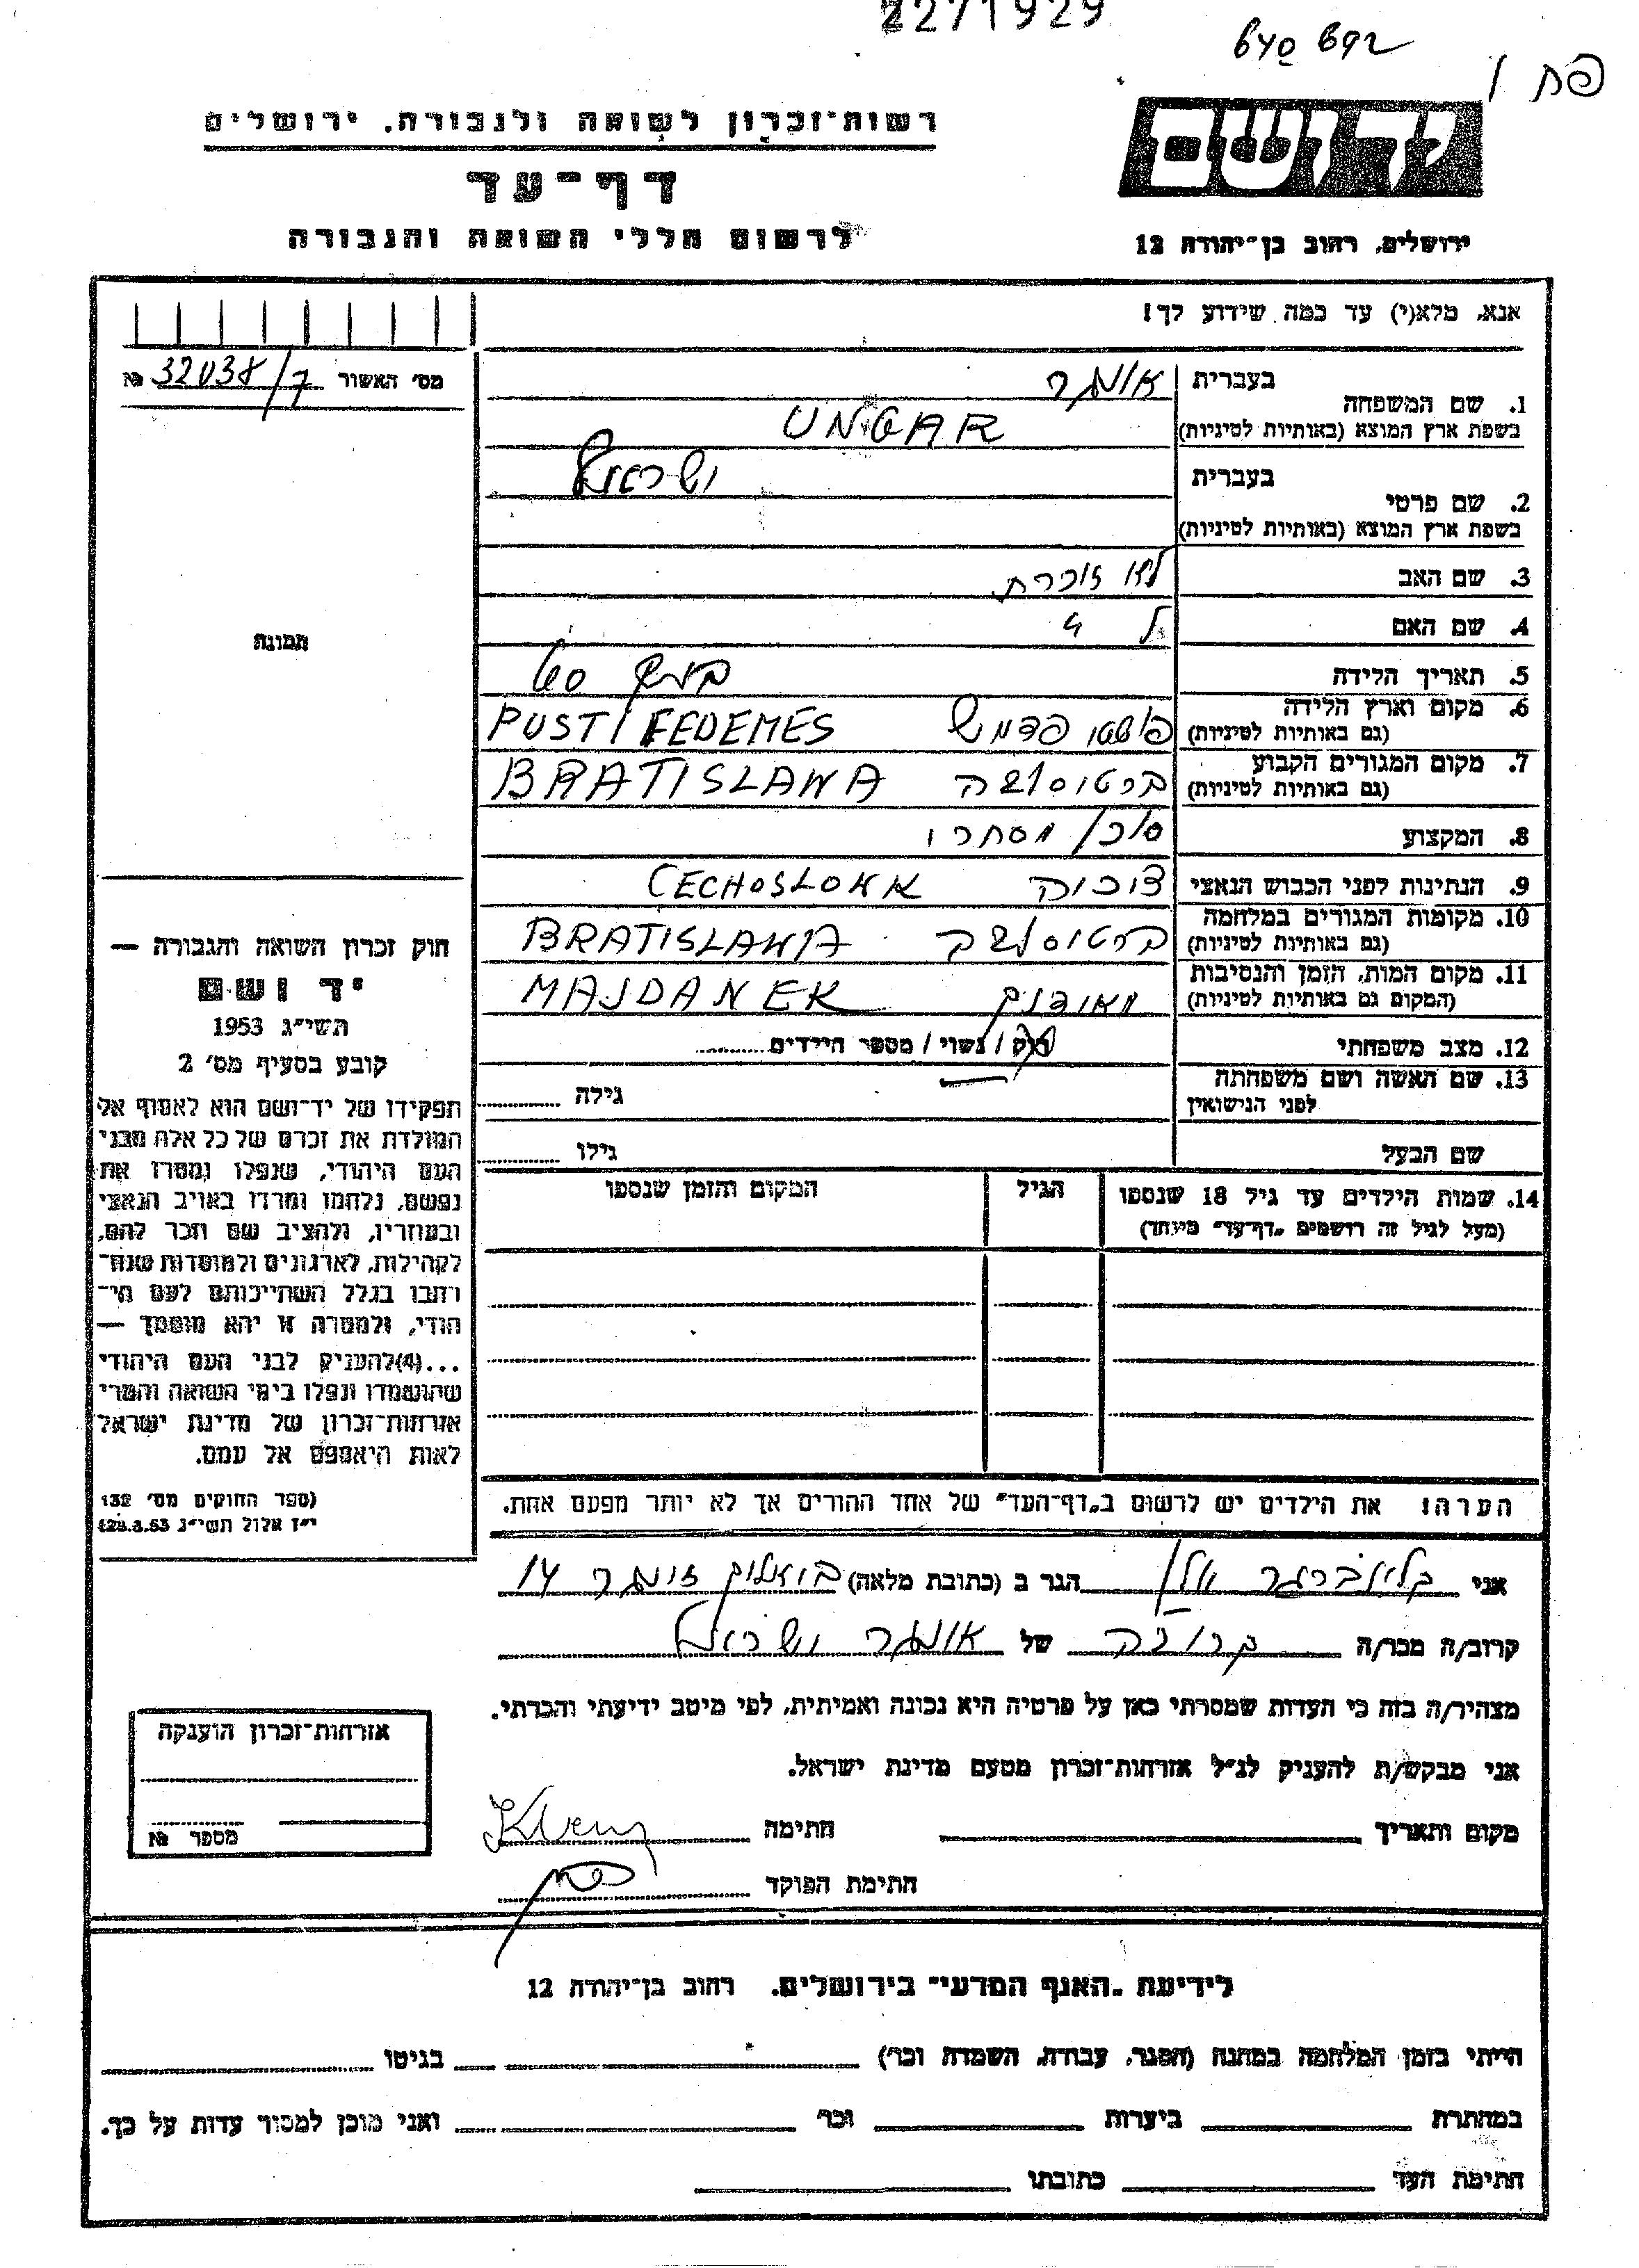 2271929
פח ן
יד ושם
רשות־זכרון לשואה ולגבורה, ירושלים
דף־עד
לרשום חללי השואה והגבורה
ירושלים, רחוב בן־יהודה 12
אנא, מלא(י) עד כמה שידוע לך!
מס׳ האשור 32038/ק №
תמונה
1. שם המשפחה
בעברית אונגר
בשפת ארץ המוצא (באותיות לטיניות) UNGAR
2. שם פרטי
בעברית ישראל
בשפת ארץ המוצא (באותיות לטיניות)
3. שם האב לא זוכרת
4. שם האם ל 4
5. תאריך הלידה 60
6. מקום וארץ הלידה
(גם באותיות לטיניות) פושטי פדמש PUSTI FEDEMES
7. מקום המגורים הקבוע
(גם באותיות לטיניות) ברטיסלבה BRATISLAWA
8. המקצוע סוכן מסחרי
9. הנתינות לפני הכבוש הנאצי צ׳כית CECHOSLOWAK
10. מקומות המגורים במלחמה
(גם באותיות לטיניות) ברטיסלבה BRATISLAWA
11. מקום המות, הזמן והנסיבות
(המקום גם באותיות לטיניות) מאידנק MAJDANEK
12. מצב משפחתי רוק / נשוי / מספר הילדים
13. שם האשה ושם משפחתה
לפני הנישואין גילה
שם הבעל גילו
14. שמות הילדים עד גיל 18 שנספו
(מעל לגיל זה רושמים "דף־עד" מיוחד)
הגיל
המקום והזמן שנספו
הערה! את הילדים יש לרשום ב"דף־העד" של אחד ההורים אך לא יותר מפעם אחת.
חוק זכרון השואה והגבורה —
יד ושם
תשי״ג 1953
קובע בסעיף מס׳ 2
תפקידו של יד־ושם הוא לאסוף אל
המולדת את זכרם של כל אלה מבני
העם היהודי, שנפלו ומסרו את
נפשם, נלחמו ומרדו באויב הנאצי
ובעוזריו, ולהציב שם וזכר להם,
לקהילות, לארגונים ולמוסדות שנח־
רבו בגלל השתייכותם לעם הי־
הודי, ולמטרה זו יהא מוסמך —
...(4)להעניק לבני העם היהודי
שהושמדו ונפלו בימי השואה והמרי
אזרחות־זכרון של מדינת ישראל
לאות היאספם אל עמם.
(ספר החוקים מס׳ 132
י״ז אלול תשי״ג 28.8.53)
אני קליינברגר הגר ב (כתובת מלאה) זינגר 14
קרוב/ה מכר/ה קרובה של אונגר ישראל
מצהיר/ה בזה כי העדות שמסרתי כאן על פרטיה היא נכונה ואמיתית, לפי מיטב ידיעתי והכרתי.
אני מבקש/ת להעניק לנ״ל אזרחות־זכרון מטעם מדינת ישראל.
מקום ותאריך חתימה
חתימת הפוקד
אזרחות־זכרון הוענקה
מספר №
לידיעת "האגף המדעי" בירושלים, רחוב בן־יהודה 12
הייתי בזמן המלחמה במחנה (הסגר, עבודה, השמדה וכו׳) בגיטו
במחתרת ביערות וכו׳ ואני מוכן למסור עדות על כך.
חתימת העד כתובתו